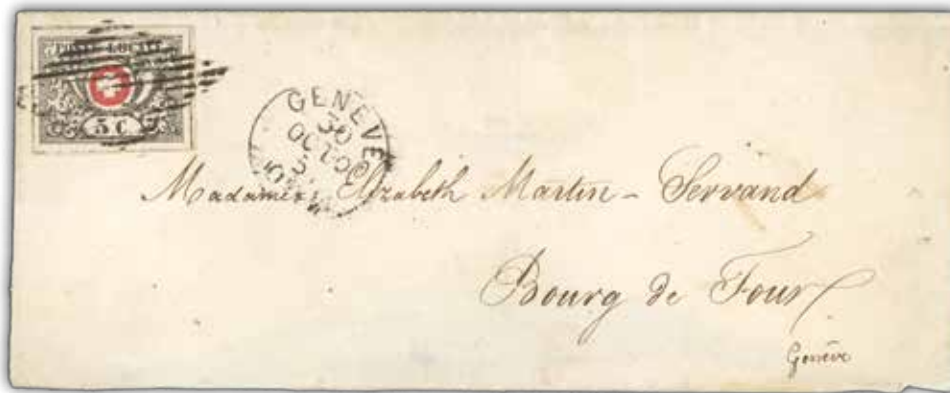 POSTE LOCALE
5 C
GENÈVE
30
OCTO
5
Madame Elizabeth Martin - Servand
Bourg de Four
Genève